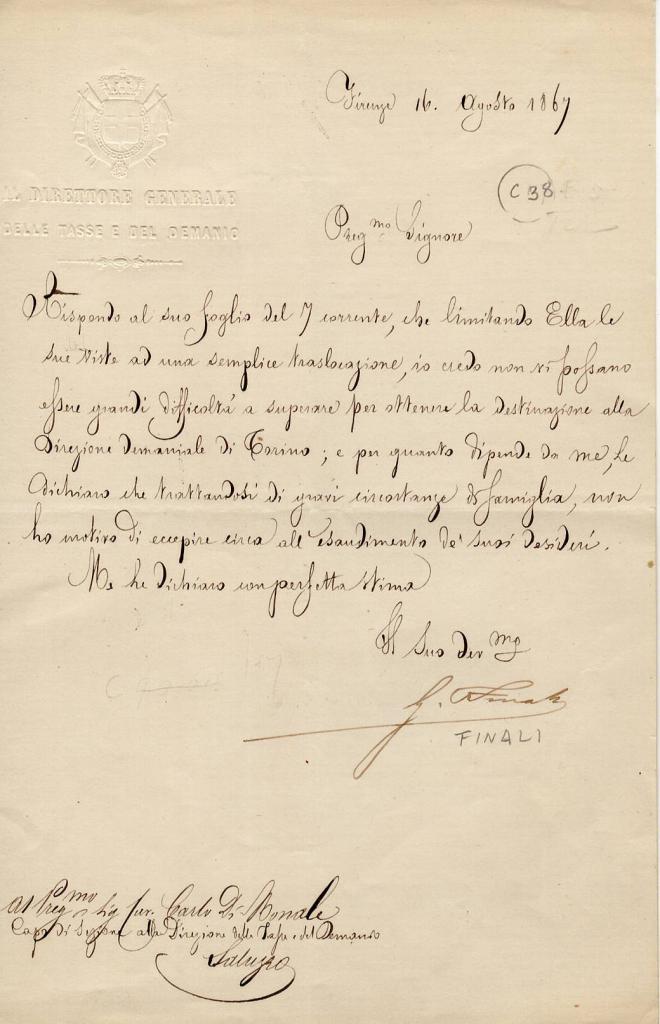 Firenze 16. Agosto 1867
IL DIRETTORE GENERALE
DELLE TASSE E DEL DEMANIO
C 38
Preg.mo Signore
Rispondo al suo foglio del 7 corrente, che limitando Ella le
sue viste ad una semplice traslocazione, io credo non vi possano
essere grandi difficoltà a superare per ottenere la destinazione alla
Direzione Demaniale di Torino; e per quanto dipende da me, Le
dichiaro che trattandosi di gravi circostanze di famiglia, non
ho motivo di eccepire circa all'esaudimento de' suoi desideri.
Me Le dichiaro con perfetta stima
Il Suo dev.mo
G. Finali
FINALI
Al Preg.mo Sig. Cav. Carlo Di Monale
Capo di Sezione alla Direzione delle Tasse e del Demanio
Saluzzo